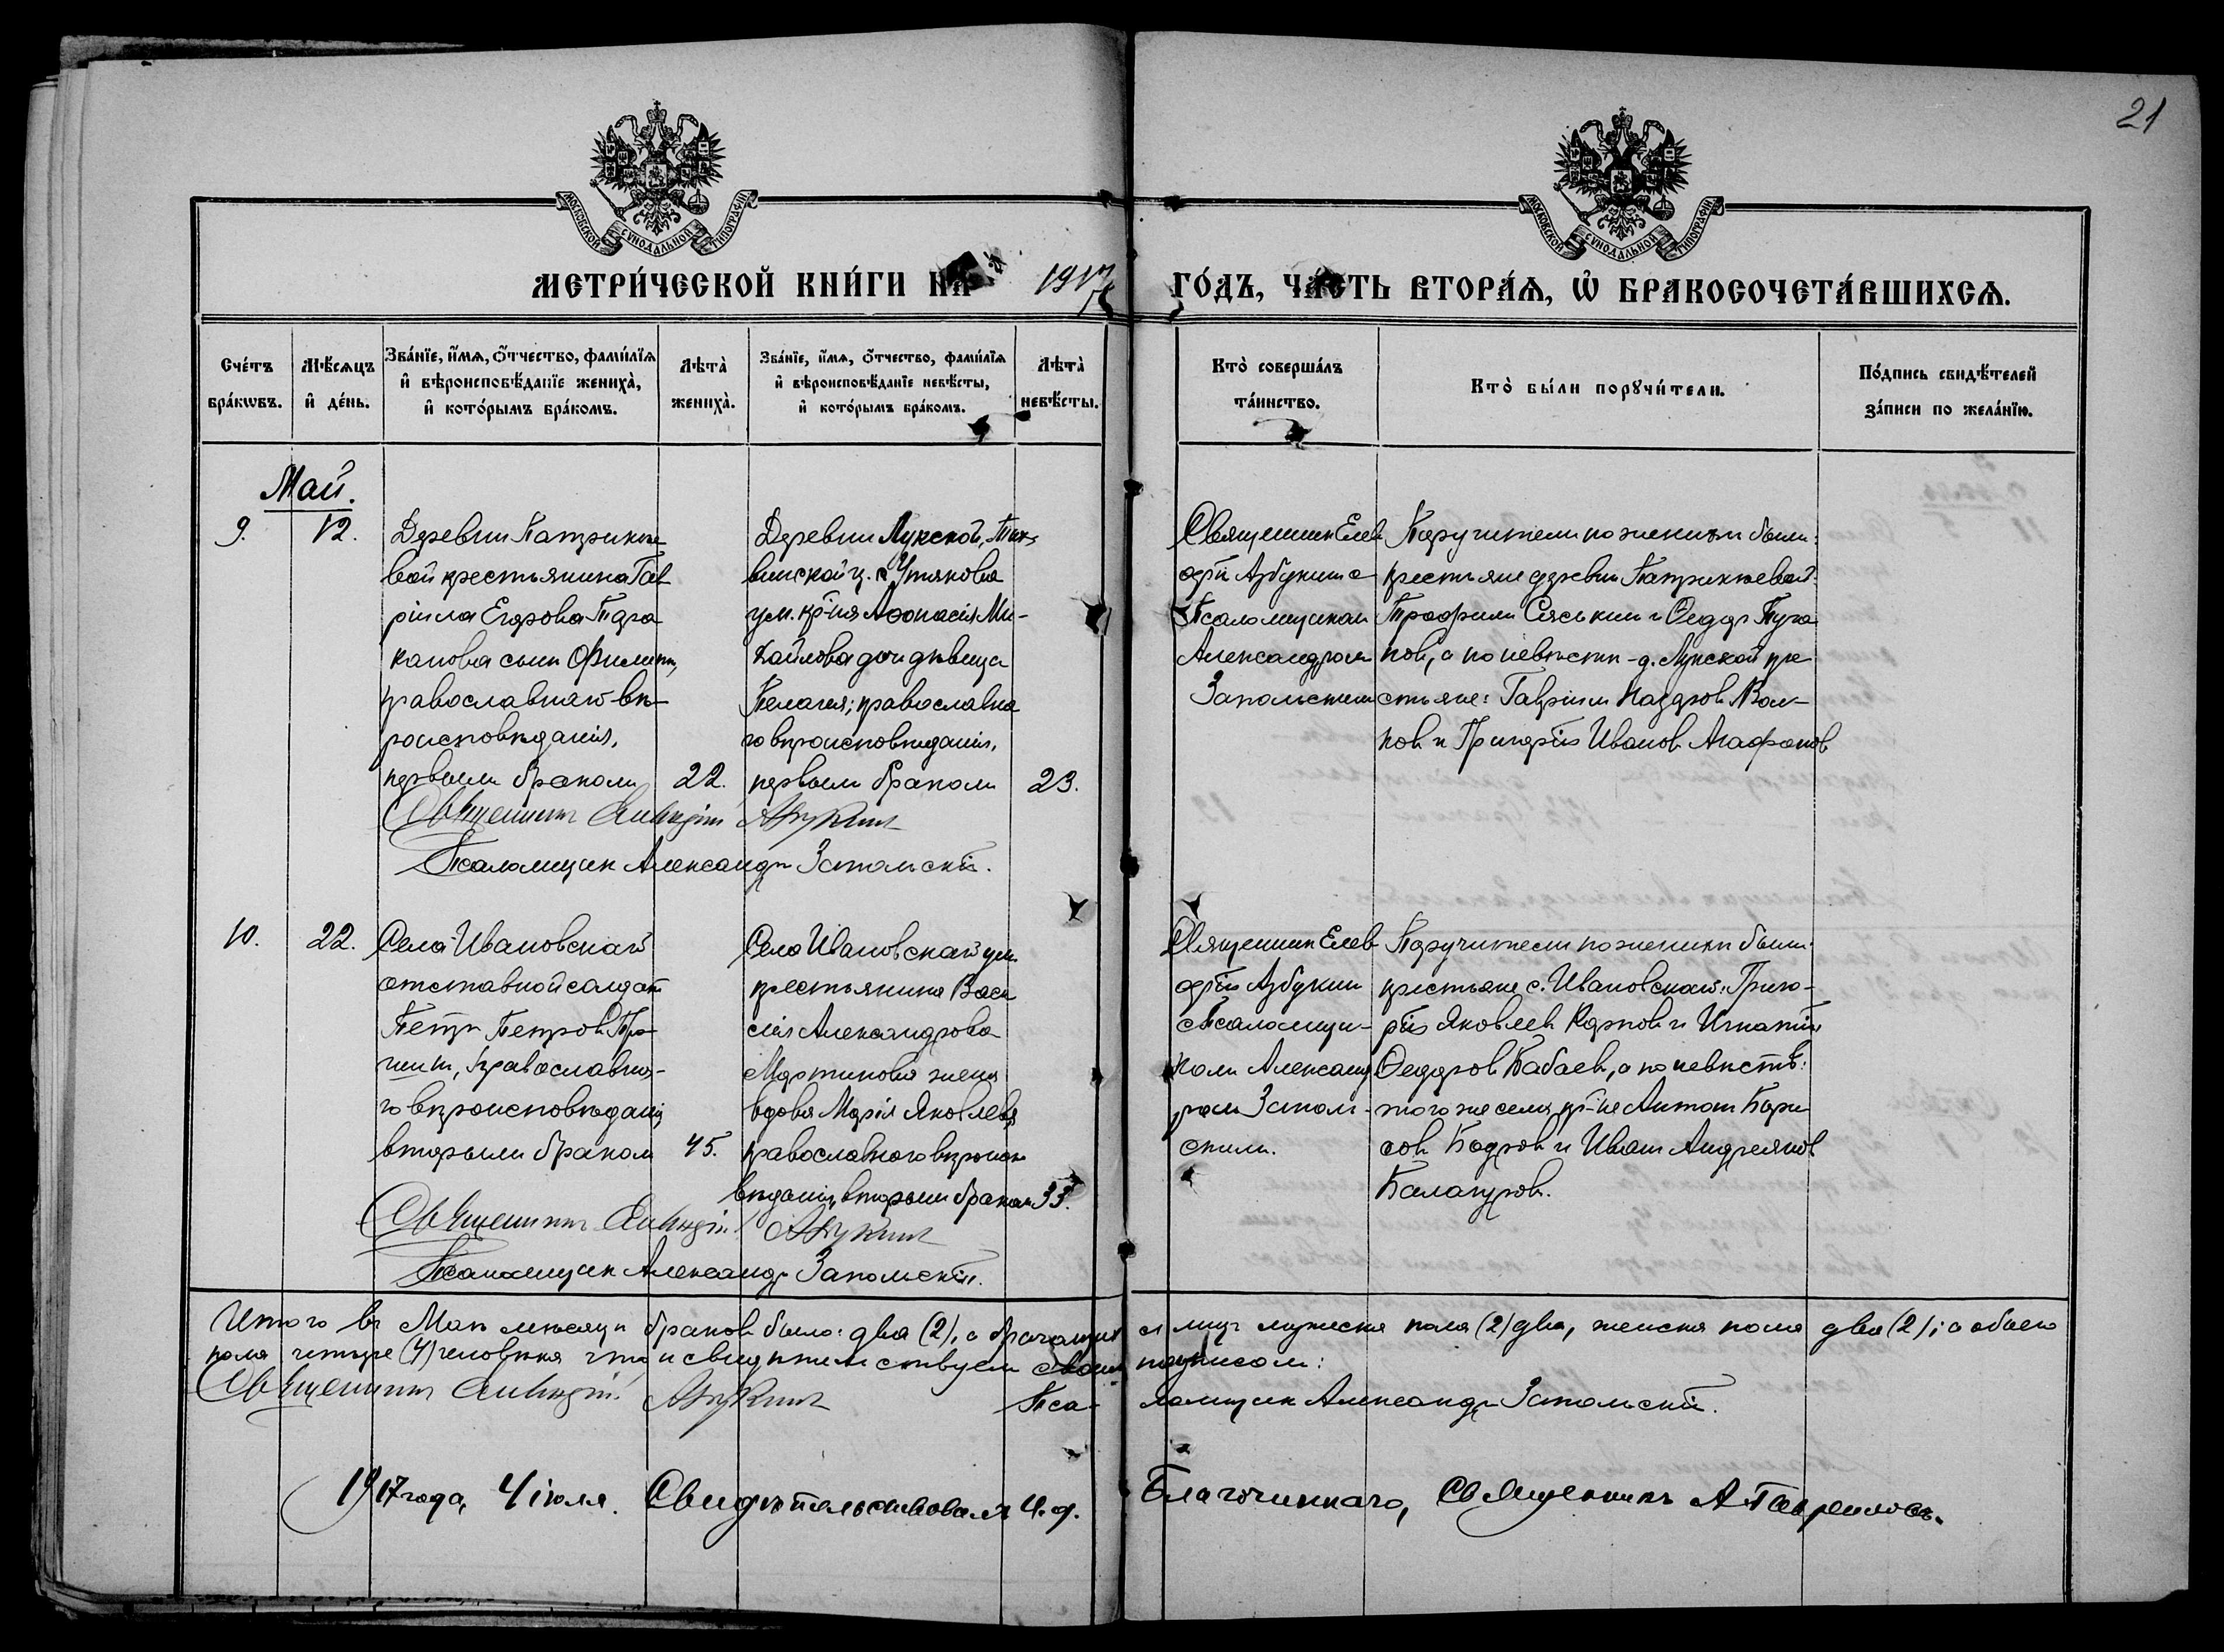 21
МОСКОВСКОЙ СѴНОДАЛЬНОЙ ТИПОГРАФІИ
МОСКОВСКОЙ СѴНОДАЛЬНОЙ ТИПОГРАФІИ
МЕТРИ́ЧЕСКОЙ КНИ́ГИ НА 1917
ГО́ДЪ, ЧА́СТЬ ВТОРА́Ѧ, Ѡ҆ БРАКОСОЧЕТА́ВШИХСѦ.
Сче́тъ
бра́кѡвъ.
Мѣ́сѧцъ
и҆ де́нь.
Зва́нїе, и҆́мѧ, ѻ҆́тчество, фами́лїѧ
и҆ вѣроисповѣ́данїе жениха̀,
и҆ кото́рымъ бра́комъ.
Лѣта̀
жениха̀.
Зва́нїе, и҆́мѧ, ѻ҆́тчество, фами́лїѧ
и҆ вѣроисповѣ́данїе невѣ́сты,
и҆ кото́рымъ бра́комъ.
Лѣта̀
невѣ́сты.
Кто̀ соверша́лъ
та́инство.
Кто̀ бы́ли порꙋчи́тели.
По́дпись свидѣ́телей
за́писи по жела́нїю.
Май.
9.
12.
Деревни Патрикѣе
вой крестьянина Гав
ріила Егорова
сынъ Филиппъ,
православнаго вѣ-
роисповѣданія,
первымъ бракомъ
22.
Деревни Лукской, Тих-
винской ц.
ум. кр-на Аѳонасія Ми-
хайлова дочь дѣвица
Пелагея; православна
го вѣроисповѣданія,
первымъ бракомъ
23.
Священник Елев
ѳерій Азбукин с
Псаломщиком
Александром
Запольским
Поручители по женихѣ были:
крестьяне деревни Патрикѣевой
Трофим Сяськин и Ѳедор Пуга
нов, а по невѣстѣ - д. Лукской кре
стьяне: Гавріил Назаров Вол-
ков и Григорій Иванов Агафонов
Священникъ Елевѳерій Азбукинъ
Псаломщик Александр Запольскій.
10.
22.
Села Ивановскаго
отставной солдат
Петр Петров
православна-
го вѣроисповѣданія,
вторым браком
45.
Села Ивановскаго ум.
крестьянина Васи
лія Александрова
Мартинова жена
вдова Марія Яковлева,
православного вѣроиспо
вѣданія, вторым браком
33.
Священник Елев
ѳерій Азбукин
с Псаломщи-
ком Александ
ром Заполь-
ским.
Поручители по женихѣ были:
крестьяне с. Ивановскаго: Григо-
рій Яковлев Карпов и Игнатій
Ѳедоров Бабаев, а по невѣстѣ:
того же села кр-не Антон Бори
сов Бодров и Иван Андреянов
Балагуров.
Священникъ Елевѳерій Азбукинъ
Псаломщик Александр Запольскій.
Итого въ Маѣ мѣсяцѣ браков было: два (2), а брачащих
ся лиц мужеска пола (2) два, женска пола два (2); а обоего
пола четыре (4) человѣка что и свидѣтельствуем своим
подписом:
Священникъ Елевѳерій Азбукинъ
Пса-
ломщик Александр Запольскій.
1917 года, 4 іюля. Свидѣтельствовалъ И. д.
Благочиннаго, Священникъ А. Гавриловъ.